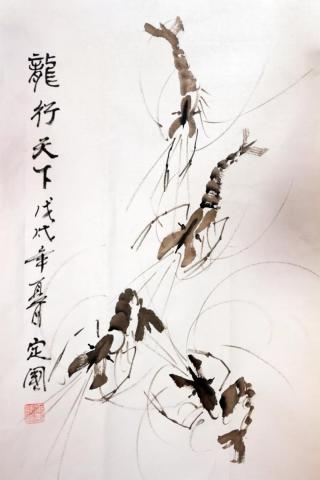 龍行天下戊戌年夏月定國